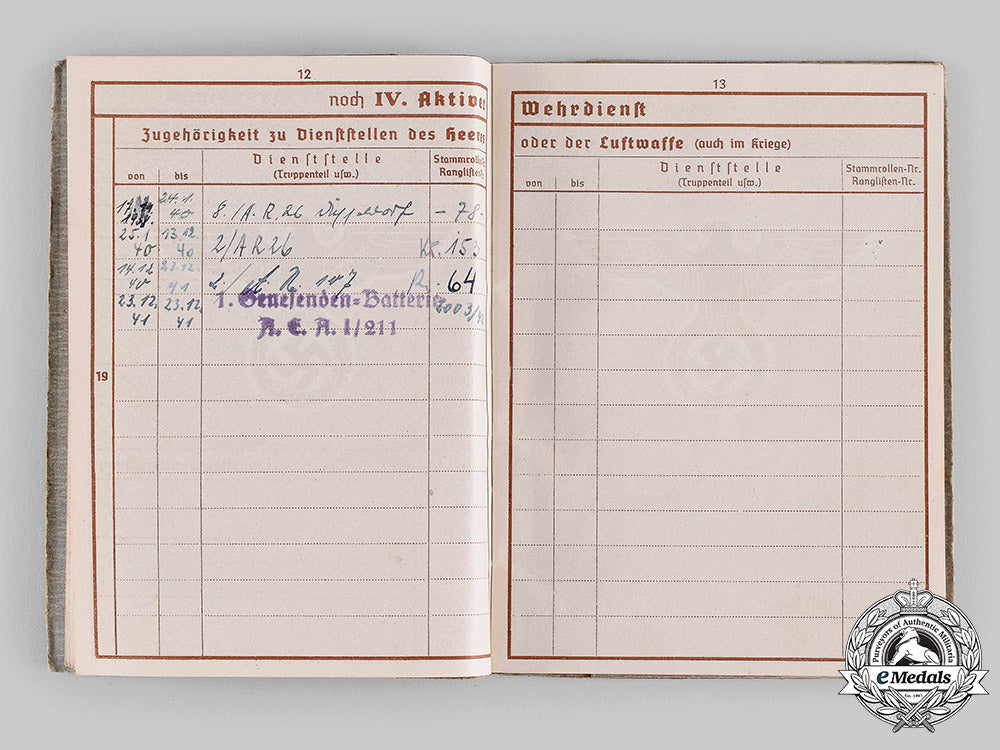 12
noch IV. Aktiver
Zugehörigkeit zu Dienststellen des Heeres
von bis Dienststelle (Truppenteil usw.) Stammrollen- Ranglisten-
24.1. 40 8./A.R.26 Düsseldorf - 78.
25.1. 40 13.12. 40 2/AR26 153
14.12 40 23.12. 41 2./ 107 64
23.12. 41 23.12. 41 1. Genesenden-Batterie 2003/
A. E. A. I/211
19
13
Wehrdienst
oder der Luftwaffe (auch im Kriege)
von bis Dienststelle (Truppenteil usw.) Stammrollen-Nr. Ranglisten-Nr.
Purveyors of Authentic Militaria
eMedals